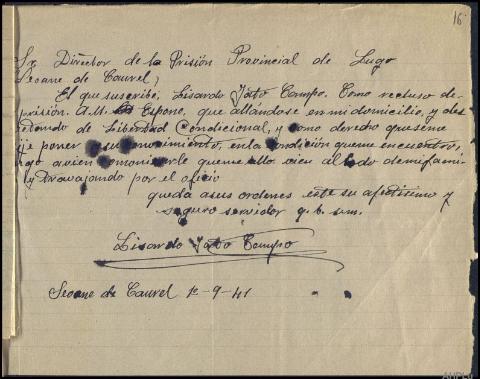 16
Sr Director de la Prisión Provincial de Lugo
Seoane de Caurel,
El que suscribe, Lisardo Jato Campo. Como recluso de
prisión. A.U. Espone, que allándose en mi domicilio, y dis
de Libertad Condicional, y como derecho que se me
poner a su conocimiento, en la condición que me encuentro,
ago a vien comonicarle que me allo vien al lado de mi fami
y travajando por el oficio
queda a sus ordenes este su afetisimo y
seguro servidor q. b. s. m.
Lisardo Jato Campo
Seoane de Caurel 1º-9-41